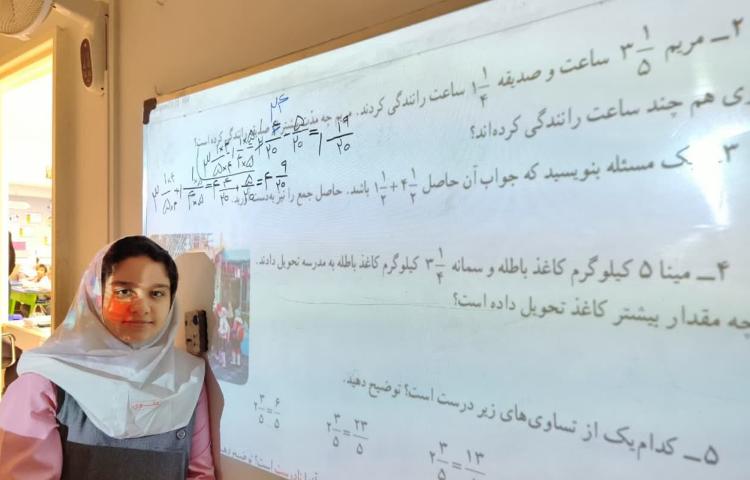 ۲ــ مریم ۳ ۱/۵ ساعت و صدیقه ۱ ۱/۴ ساعت رانندگی کردند. مریم چه مدت بیشتر از صدیقه رانندگی کرده است؟
روی هم چند ساعت رانندگی کرده‌اند؟
۳ــ یک مسئله بنویسید که جواب آن حاصل ۴ ۱/۲ + ۱ ۱/۲ باشد. حاصل جمع را نیز به‌دست آورید.
۴ــ مینا ۵ کیلوگرم کاغذ باطله و سمانه ۳ ۱/۴ کیلوگرم کاغذ باطله به مدرسه تحویل دادند.
چه مقدار بیشتر کاغذ تحویل داده است؟
۵ــ کدام یک از تساوی‌های زیر درست است؟ توضیح دهید.
۲ ۳/۵ = ۶/۵
۲ ۳/۵ = ۲۳/۵
۲ ۳/۵ = ۱۳/۵
۲۴
۵/۲۰ = ۱ ۱۹/۲۰
= ۴ ۹/۲۰